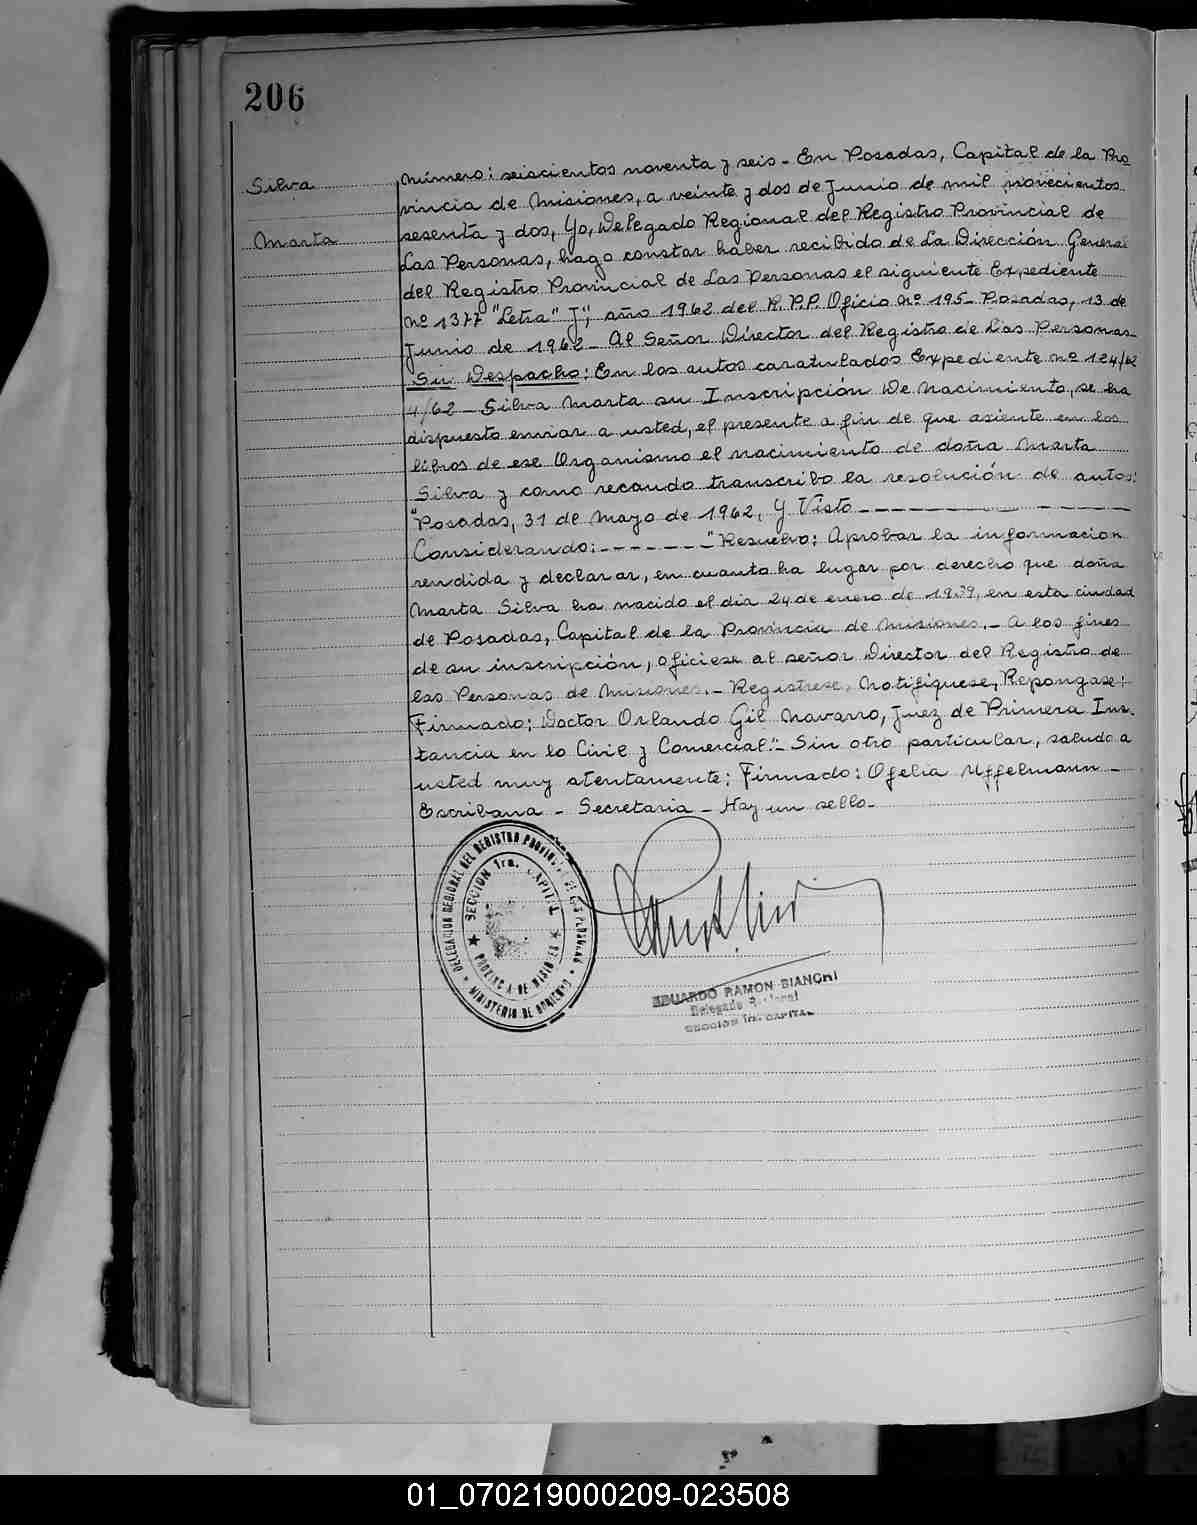 206
Silva
Marta
Número: seiscientos noventa y seis - En Posadas, Capital de la Pro
vincia de Misiones, a veinte y dos de Junio de mil novecientos
sesenta y dos, Yo, Delegado Regional del Registro Provincial de
Las Personas, hago constar haber recibido de La Dirección General
del Registro Provincial de Las Personas el siguiente Expediente
Nº 1377 "Letra" J", año 1962 del R.P.P. Oficio Nº 195 - Posadas, 13 de
Junio de 1962 - Al Señor Director del Registro de Las Personas
Su Despacho: En los autos caratulados Expediente Nº 124/62
4/62 - Silva Marta su Inscripción De Nacimiento, se ha
dispuesto enviar a usted, el presente a fin de que asiente en los
libros de ese Organismo el nacimiento de doña Marta
Silva y como recaudo transcribo la resolución de autos:
"Posadas, 31 de Mayo de 1962, Y Visto - - - - - - - - - - - -
Considerando: - - - - - - - "Resuelvo: Aprobar la informacion
rendida y declarar, en cuanto ha lugar por derecho que doña
Marta Silva ha nacido el día 24 de enero de 1939, en esta ciudad
de Posadas, Capital de la Provincia de Misiones. - A los fines
de su inscripción, ofíciese al señor Director del Registro de
las Personas de Misiones. - Regístrese, Notifíquese, Repongase:
Firmado: Doctor Orlando Gil Navarro, Juez de Primera Ins-
tancia en lo Civil y Comercial." - Sin otro particular, saludo a
usted muy atentamente: Firmado: Ofelia Uffelmann -
Escribana - Secretaria - Hay un sello -
DELEGACION REGIONAL DEL REGISTRO PROVINCIAL DE LAS PERSONAS
SECCION 1ra. CAPITAL
PROVINCIA DE MISIONES
MINISTERIO DE GOBIERNO
EDUARDO RAMON BIANCHI
Delegado Regional
SECCION 1ra. CAPITAL
01_070219000209-023508